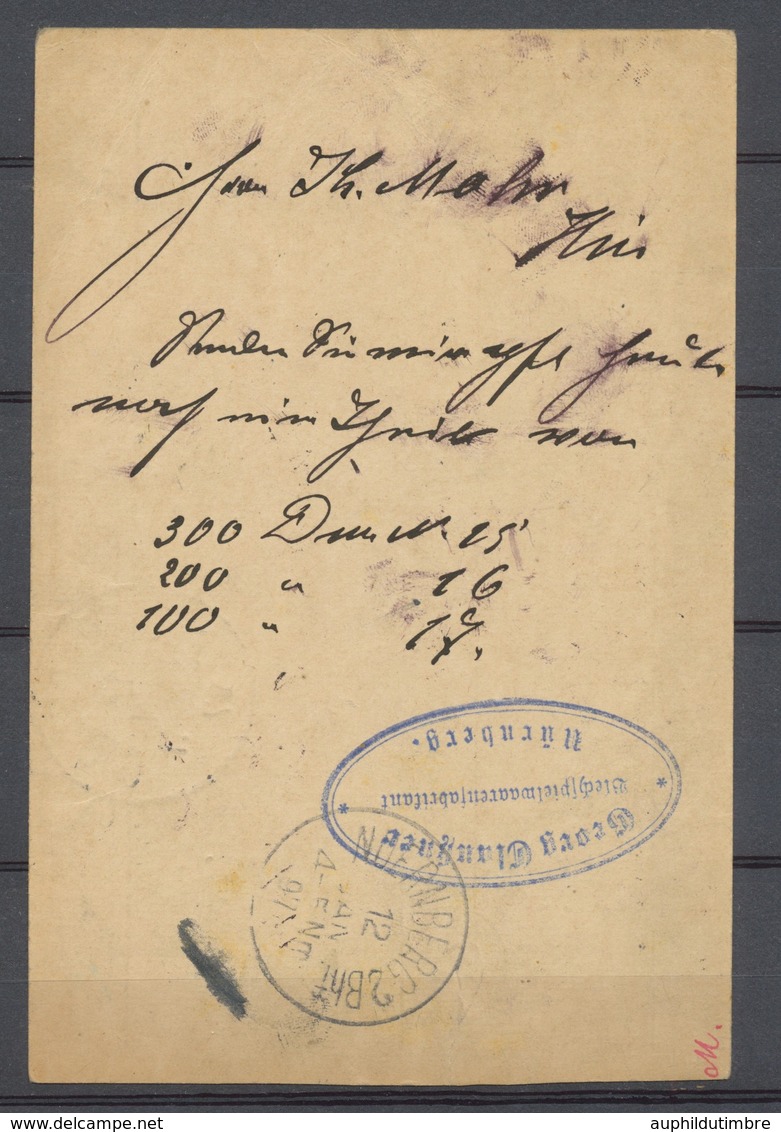 Herrn Th. Mohr
Hier
Senden Sie mir gfl. heute
noch einen Theil von
300 Dum N. 15
200 " 16
100 " 17.
"
Georg Claugner
Blechspielwaarenfabrikant
Nürnberg.
NÜRNBERG 2 Bhf.
12
JAN
4-5 N
97
M.
auphildutimbre.com